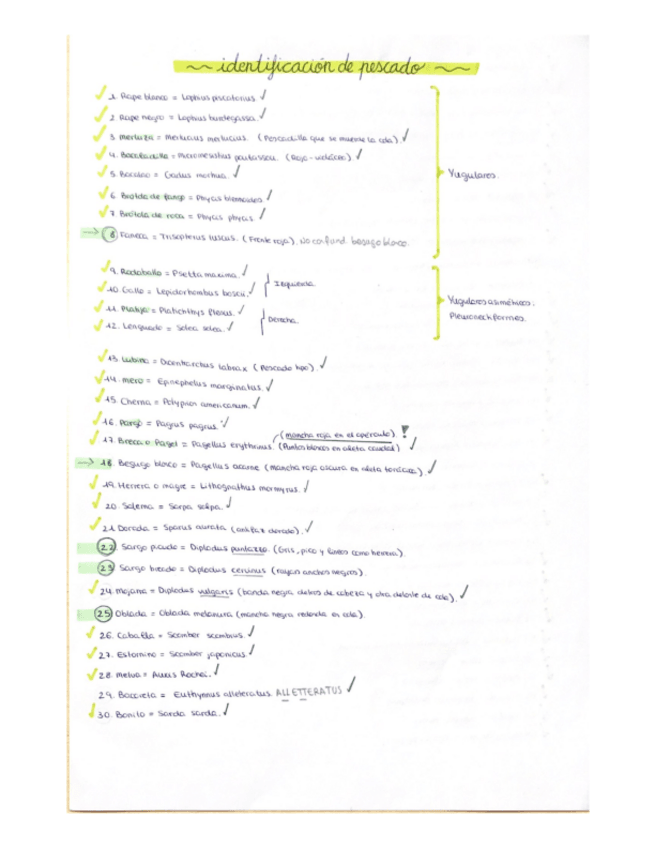 ~ identificación de pescado ~
1. Rape blanco = Lophius piscatorius ✓
2. Rape negro = Lophius budegassa. ✓
3. merluza = Merlucius merlucius. (Pescadilla que se muerde la cola). ✓
4. Bacaladilla = micromesistius poutassou. (Rojo-violáceo) ✓
5. Bacalao = Gadus morhua. ✓
6. Brótola de fango = Phycis blennoides. ✓
7. Brótola de roca = Phycis phycis. ✓
→ 8. Faneca = Trisopterus luscus. (Frente roja). No confund. besugo blanco.
Yugulares.
9. Rodaballo = Psetta maxima. ✓
10. Gallo = Lepidorhombus boscii. ✓
Izquierda
11. Platija = Platichthys flesus. ✓
12. Lenguado = Solea solea. ✓
Derecha.
Yugulares asimétricos.
Pleuronectiformes.
13. Lubina = Dicentrarchus labrax (Pescado tipo). ✓
14. mero = Epinephelus marginatus. ✓
15. Cherna = Polyprion americanum. ✓
16. Pargo = Pagrus pagrus. ✓
17. Breca o Pagel = Pagellus erythrinus. (mancha roja en el opérculo). ! (Puntos blancos en aleta caudal) ✓
→ 18. Besugo blanco = Pagellus acarne (mancha roja oscura en aleta torácica). ✓
19. Herrera o magre = Lithognathus mormyrus. ✓
20. Salema = Sarpa salpa. ✓
21. Dorada = Sparus aurata (antifaz dorado). ✓
22. Sargo picudo = Diplodus puntazzo. (Gris, pico y líneas como herrera).
23. Sargo breado = Diplodus cervinus (rayas anchas negras).
24. Mojarra = Diplodus vulgaris (banda negra detrás de cabeza y otra delante de cola). ✓
25. Oblada = Oblada melanura (mancha negra redonda en cola).
26. Caballa = Scomber scombrus. ✓
27. Estornino = Scomber japonicus. ✓
28. Melva = Auxis Rochei. ✓
29. Bacoreta = Euthynnus alleteratus. ALLETTERATUS ✓
30. Bonito = Sarda sarda. ✓